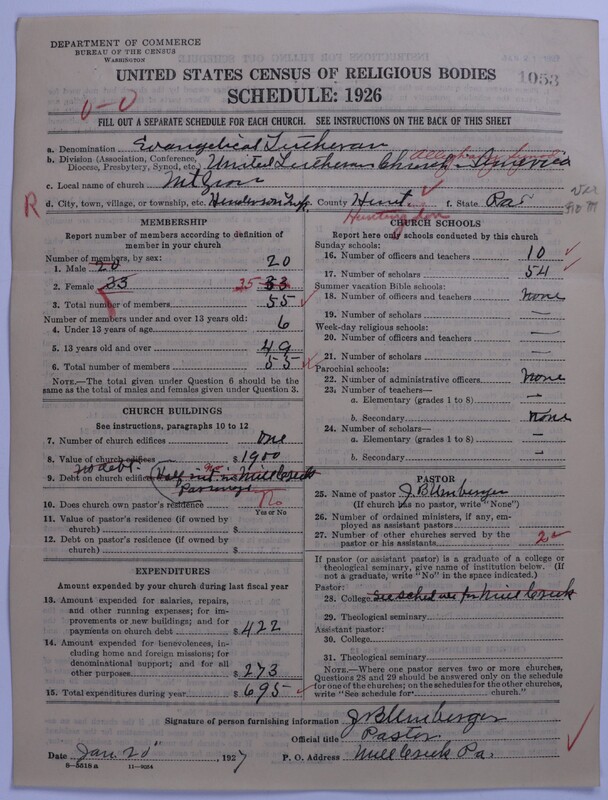 DEPARTMENT OF COMMERCE
BUREAU OF THE CENSUS
WASHINGTON
UNITED STATES CENSUS OF RELIGIOUS BODIES
1053
SCHEDULE: 1926
0-0
FILL OUT A SEPARATE SCHEDULE FOR EACH CHURCH. SEE INSTRUCTIONS ON THE BACK OF THIS SHEET
a. Denomination Evangelical Lutheran
b. Division (Association, Conference, Diocese, Presbytery, Synod, etc. United Lutheran Church in America
Allegheny Synod
c. Local name of church Mt Zion
R d. City, town, village, or township, etc. Henderson Twp. County Hunt f. State Pa
Huntingdon
MEMBERSHIP
Report number of members according to definition of member in your church
Number of members, by sex:
1. Male 20 20
2. Female 33 35 33
3. Total number of members 55
Number of members under and over 13 years old:
4. Under 13 years of age 6
5. 13 years old and over 49
6. Total number of members 55
NOTE.—The total given under Question 6 should be the same as the total of males and females given under Question 3.
CHURCH BUILDINGS
See instructions, paragraphs 10 to 12
7. Number of church edifices one
8. Value of church edifices $ 1900
no debt.
9. Debt on church edifices Half int. in Mill Creek
Parsonage
10. Does church own pastor's residence No
Yes or No
11. Value of pastor's residence (if owned by church) $
12. Debt on pastor's residence (if owned by church) $
EXPENDITURES
Amount expended by your church during last fiscal year
13. Amount expended for salaries, repairs, and other running expenses; for improvements or new buildings; and for payments on church debt $ 422
14. Amount expended for benevolences, including home and foreign missions; for denominational support; and for all other purposes $ 273
15. Total expenditures during year $ 695
CHURCH SCHOOLS
Report here only schools conducted by this church
Sunday schools:
16. Number of officers and teachers 10
17. Number of scholars 54
Summer vacation Bible schools:
18. Number of officers and teachers None
19. Number of scholars —
Week-day religious schools:
20. Number of officers and teachers —
21. Number of scholars —
Parochial schools:
22. Number of administrative officers None
23. Number of teachers—
a. Elementary (grades 1 to 8) —
b. Secondary None
24. Number of scholars—
a. Elementary (grades 1 to 8) —
b. Secondary —
PASTOR
25. Name of pastor J. B Umberger
(If church has no pastor, write "None")
26. Number of ordained ministers, if any, employed as assistant pastors
27. Number of other churches served by the pastor or his assistants 2
If pastor (or assistant pastor) is a graduate of a college or theological seminary, give name of institution below. (If not a graduate, write "No" in the space indicated.)
Pastor:
28. College See schedule for Mill Creek
29. Theological seminary
Assistant pastor:
30. College
31. Theological seminary
NOTE.—Where one pastor serves two or more churches, Questions 28 and 29 should be answered only on the schedule for one of the churches; on the schedules for the other churches, write "See schedule for church."
Signature of person furnishing information J B Umberger
Official title Pastor
Date Jan. 20 1927 P. O. Address Mill Creek Pa.
8-5518 a 11-9054